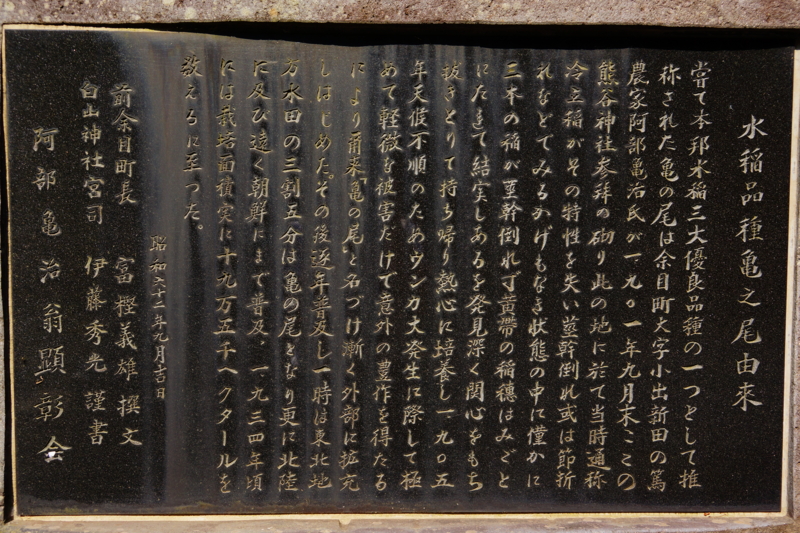 水稲品種亀之尾由来
嘗て本邦水稲三大優良品種の一つとして推
称された亀の尾は余目町大字小出新田の篤
農家阿部亀治氏が一九〇一年九月末ここの
熊谷神社参拝の砌り此の地に於て当時通称
冷立稲がその特性を失い茎幹倒れ或は節折
れなどでみるかげもなき状態の中に僅かに
三本の稲が茎幹倒れず黄帯の稲穂はみごと
にたれて結実しあるを発見深く関心をもち
抜きとりて持ち帰り熱心に培養し一九〇五
年天候不順のためウンカ大発生に際して極
めて軽微な被害だけで意外の豊作を得たる
により爾来「亀の尾」と名づけ漸く外部に拡充
しはじめた。その後逐年普及し一時は東北地
方水田の三割五分は亀の尾となり更に北陸
に及び遠く朝鮮にまで普及、一九三四年頃
には栽培面積実に十九万五千ヘクタールを
数えるに至つた。
昭和六十二年九月吉日
前余目町長 富樫義雄 撰文
白山神社宮司 伊藤秀光 謹書
阿部亀治翁顕彰会